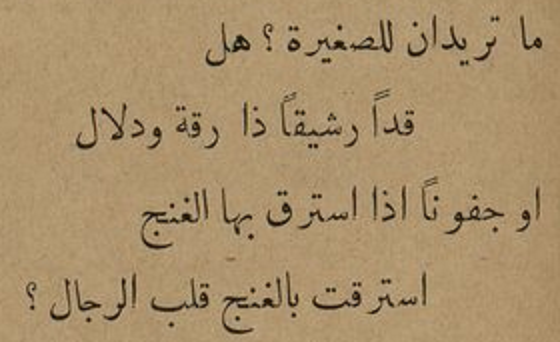 ما تريدان للصغيرة ؟ هل
قداً رشيقاً ذا رقة ودلال
او جفوناً اذا استرق بها الغنج
استرقت بالغنج قلب الرجال ؟